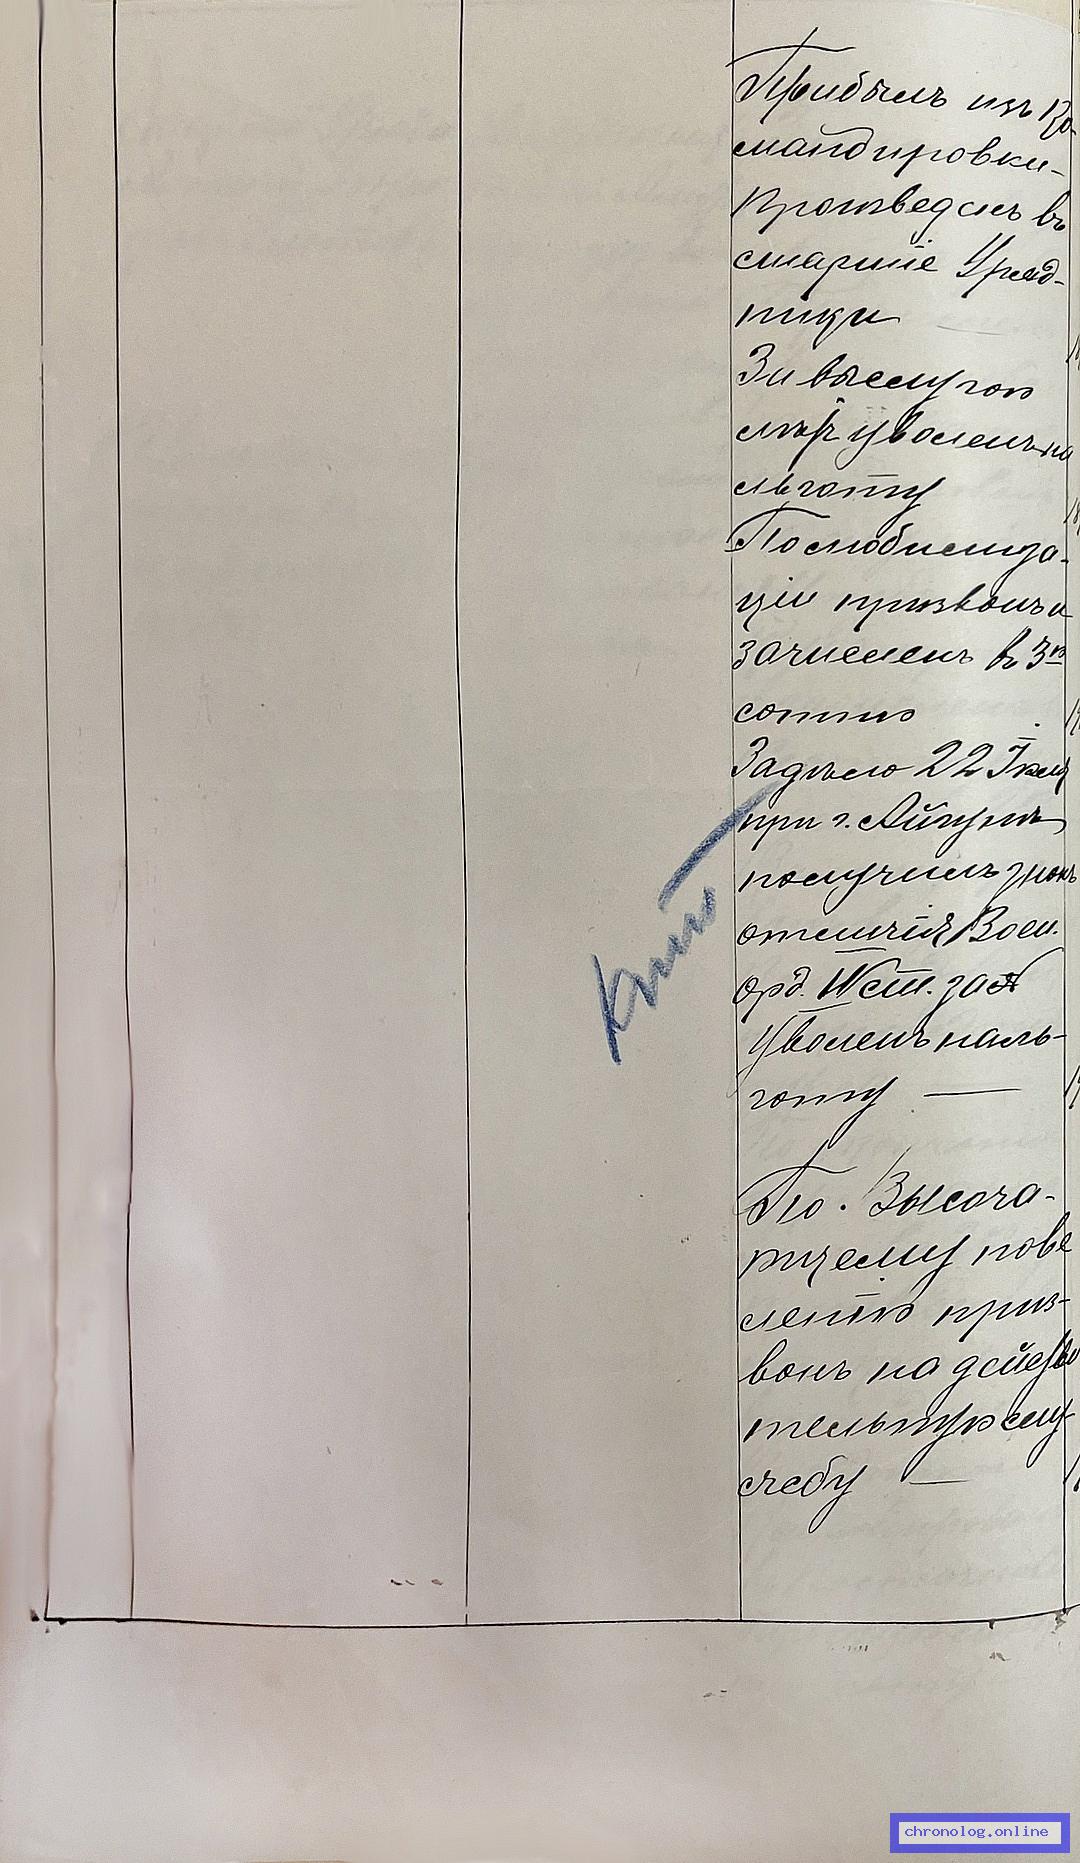 Прибылъ изъ ко-
мандировки-
Произведенъ въ
старшіе Уряд-
ники
За выслугою
лѣтъ уволенъ на
льготу
По мобилиза-
ціи призванъ и
зачисленъ въ 3ю
сотню
За дѣло 22 Іюля
при г. Айгунѣ
получилъ знакъ
отличія Воен.
орд. IV ст. за №
Уволенъ на ль-
готу —
По Высоча-
йшему пове
лѣнію приз-
ванъ на действи
тельную слу-
жбу —
chronolog.online